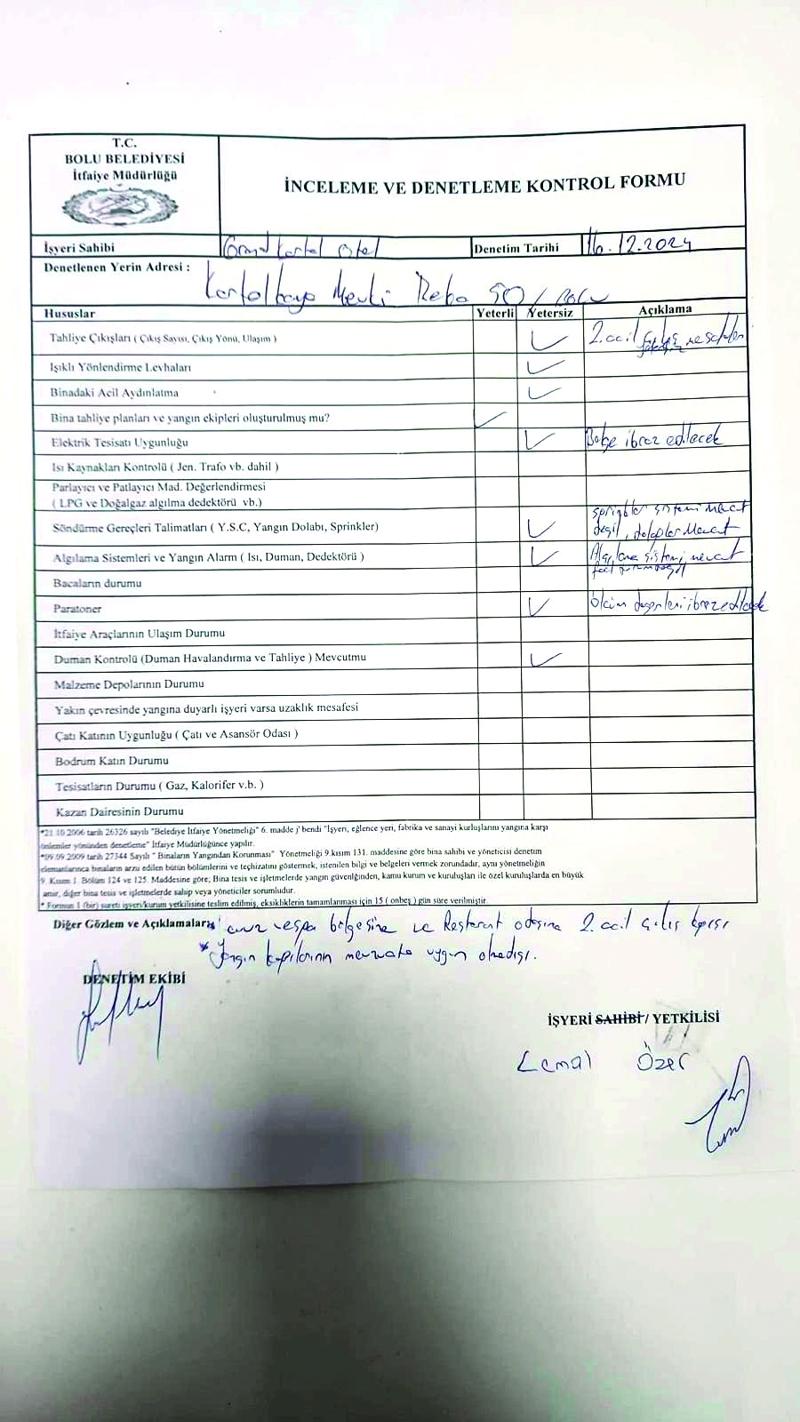 T.C.
BOLU BELEDİYESİ
İtfaiye Müdürlüğü
İNCELEME VE DENETLEME KONTROL FORMU
İşyeri Sahibi Grand Kartal Otel Denetim Tarihi 16.12.2024
Denetlenen Yerin Adresi : Kartalkaya Mevkii 90/Bolu
Hususlar Yeterli Yetersiz Açıklama
Tahliye Çıkışları ( Çıkış Sayısı, Çıkış Yönü, Ulaşım ) 2. acil
Işıklı Yönlendirme Levhaları
Binadaki Acil Aydınlatma
Bina tahliye planları ve yangın ekipleri oluşturulmuş mu?
Elektrik Tesisatı Uygunluğu Belge ibraz edilecek
Isı Kaynakları Kontrolü ( Jen. Trafo vb. dahil )
Parlayıcı ve Patlayıcı Mad. Değerlendirmesi
( LPG ve Doğalgaz algılma dedektörü vb.)
Söndürme Gereçleri Talimatları ( Y.S.C, Yangın Dolabı, Sprinkler) sistemi mevcut
değil, dolaplar mevcut
Algılama Sistemleri ve Yangın Alarm ( Isı, Duman, Dedektörü ) Algılama sistemi mevcut
Bacaların durumu
Paratoner ölçüm değerleri ibraz edilecek
İtfaiye Araçlarının Ulaşım Durumu
Duman Kontrolü (Duman Havalandırma ve Tahliye ) Mevcutmu
Malzeme Depolarının Durumu
Yakın çevresinde yangına duyarlı işyeri varsa uzaklık mesafesi
Çatı Katının Uygunluğu ( Çatı ve Asansör Odası )
Bodrum Katın Durumu
Tesisatların Durumu ( Gaz, Kalorifer v.b. )
Kazan Dairesinin Durumu
*21.10.2006 tarih 26326 sayılı "Belediye İtfaiye Yönetmeliği" 6. madde j' bendi "İşyeri, eğlence yeri, fabrika ve sanayi kurluşlarını yangına karşı
önlemler yönünden denetleme" İtfaiye Müdürlüğünce yapılır.
*09.09.2009 tarih 27344 Sayılı "Binaların Yangından Korunması" Yönetmeliği 9.kisim 131. maddesine göre bina sahibi ve yöneticisi denetim
elemanlarınca binaların arzu edilen bütün bölümlerini ve teçhizatını göstermek, istenilen bilgi ve belgeleri vermek zorundadır, aynı yönetmeliğin
9. Kısım 1. Bölüm 124 ve 125. Maddesine göre; Bina tesis ve işletmelerde yangın güvenliğinden, kamu kurum ve kuruluşları ile özel kuruluşlarda en büyük
amir, diğer bina tesis ve işletmelerde sahip veya yöneticiler sorumludur.
* Formun 1 (bir) sureti işyeri/kurum yetkilisine teslim edilmiş, eksikliklerin tamamlanması için 15 ( onbeş ) gün süre verilmiştir.
Diğer Gözlem ve Açıklamalar: bölgesine ve Restorant odasına 2. acil çıkış kapısı
* Yangın kapılarının mevzuata uygun olmadığı.
DENETİM EKİBİ
İŞYERİ SAHİBİ / YETKİLİSİ
Cemal Özer